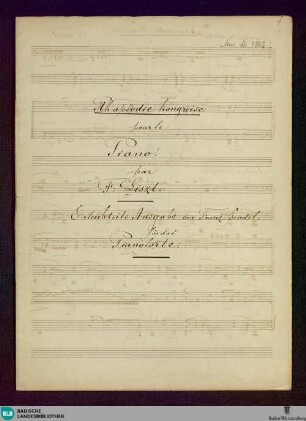 Mus. Hs. 1303
Rhapsodie hongroise
pour le
Piano
par
Fr. Liszt.
Erleichterte Ausgabe von Franz Bendel
für das
Pianoforte.
BLB BADISCHE
LANDESBIBLIOTHEK
Baden-Württemberg